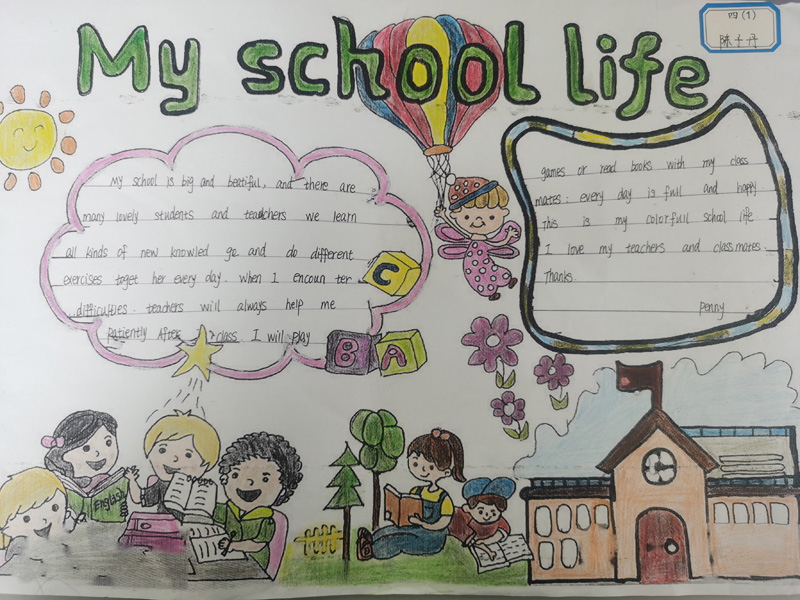 My school life
四(1)
陈千丹
My school is big and beatiful, and there are
many lovely students and teachers we learn
all kinds of new knowled ge and do different
exercises toget her every day. when I encoun ter
difficulties. teachers will always help me
patiently After class. I will play
C
B A
games or read books with my class
mates. every day is full and happy.
This is my colorfull school life
I love my teachers and classmates.
Thanks.
penny
English